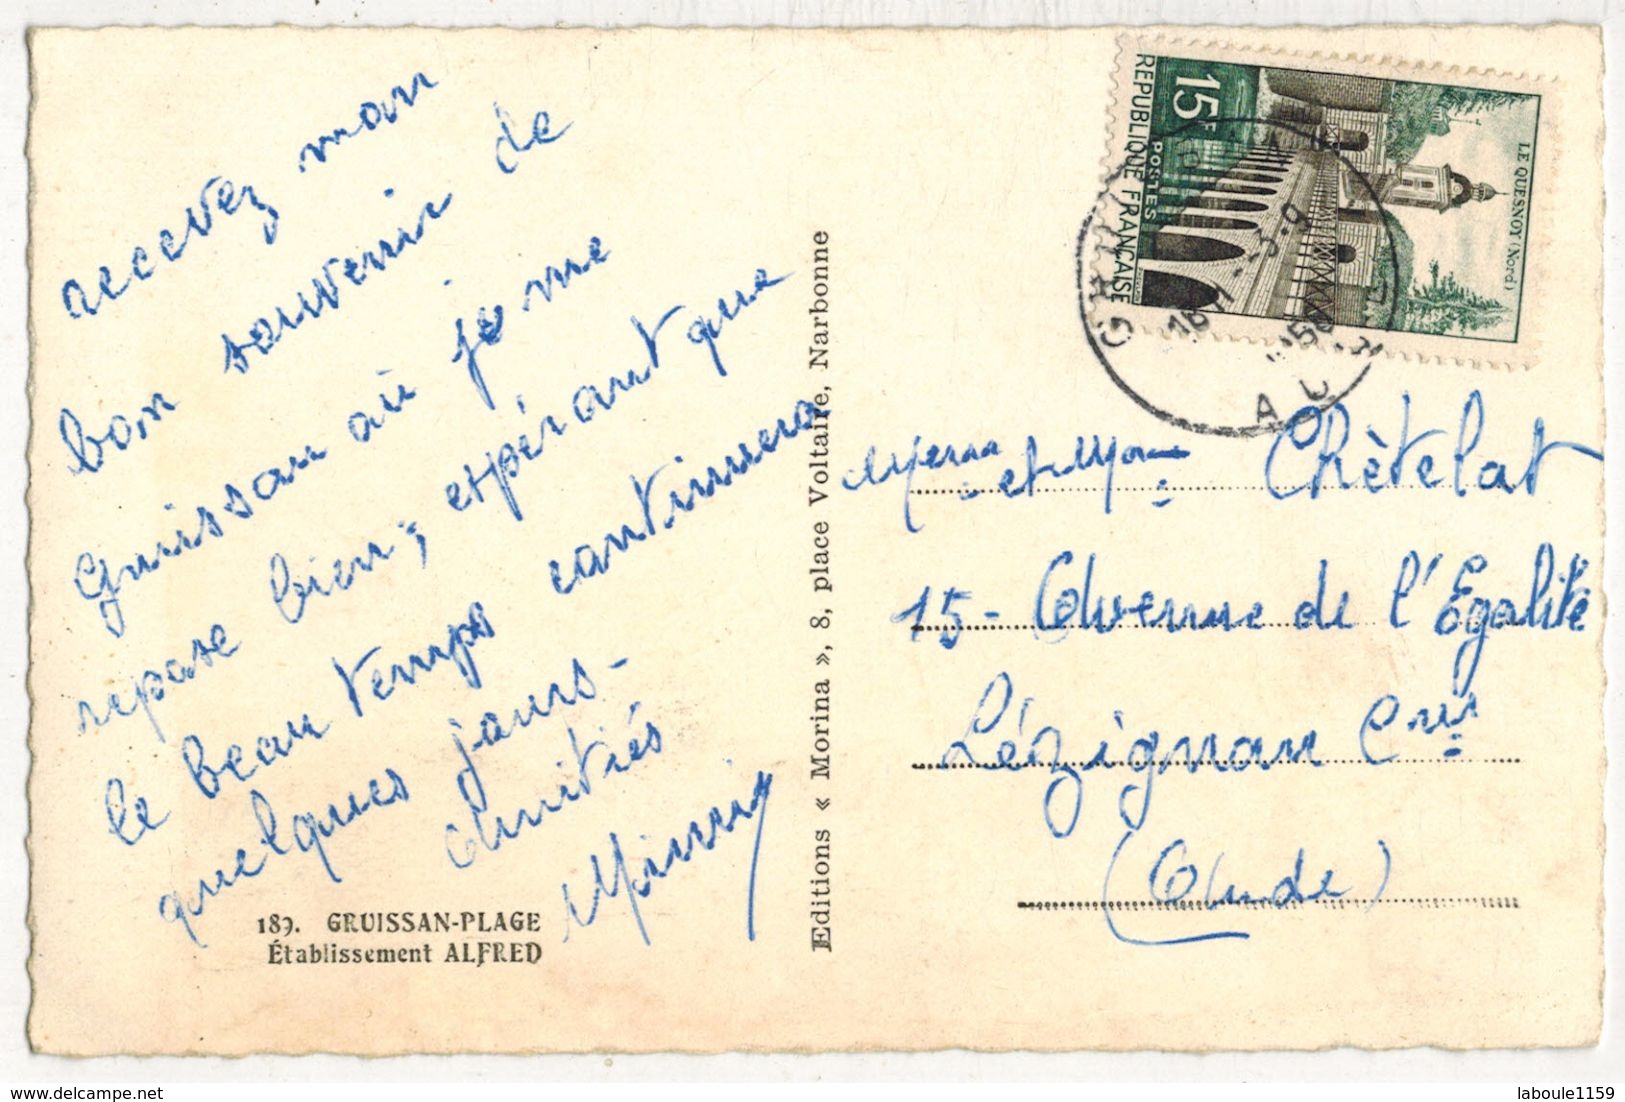 recevez mon
bon souvenir de
Gruissan où je me
repose bien; espérant que
le beau temps continuera
quelques jours -
Amitiés
Mimi
189. GRUISSAN-PLAGE
Établissement ALFRED
Editions « Morina », 8, place Voltaire, Narbonne
15F
POSTES
REPUBLIQUE FRANÇAISE
LE QUESNOY (Nord)
16H
-3-9
et Mme Chètelat
15 - Avenue de l'Egalité
Lézignan Cres
(Aude)
laboule1159